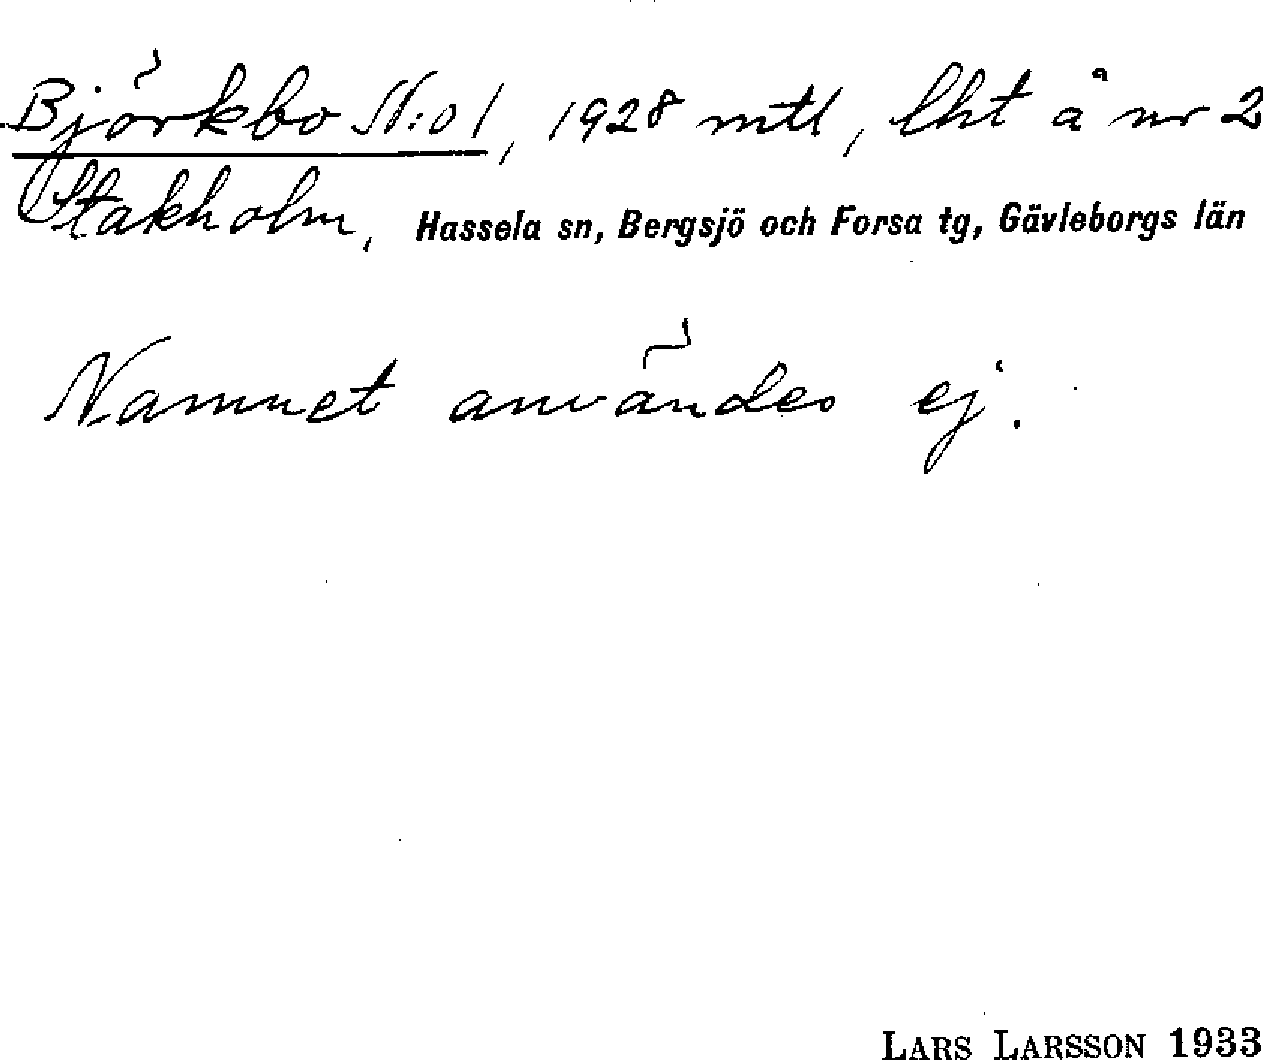 Björkbo N:o 1, 1928 mtl, lht å nr 2
Stakholm, Hassela sn, Bergsjö och Forsa tg, Gävleborgs län
Namnet användes ej.
LARS LARSSON 1933